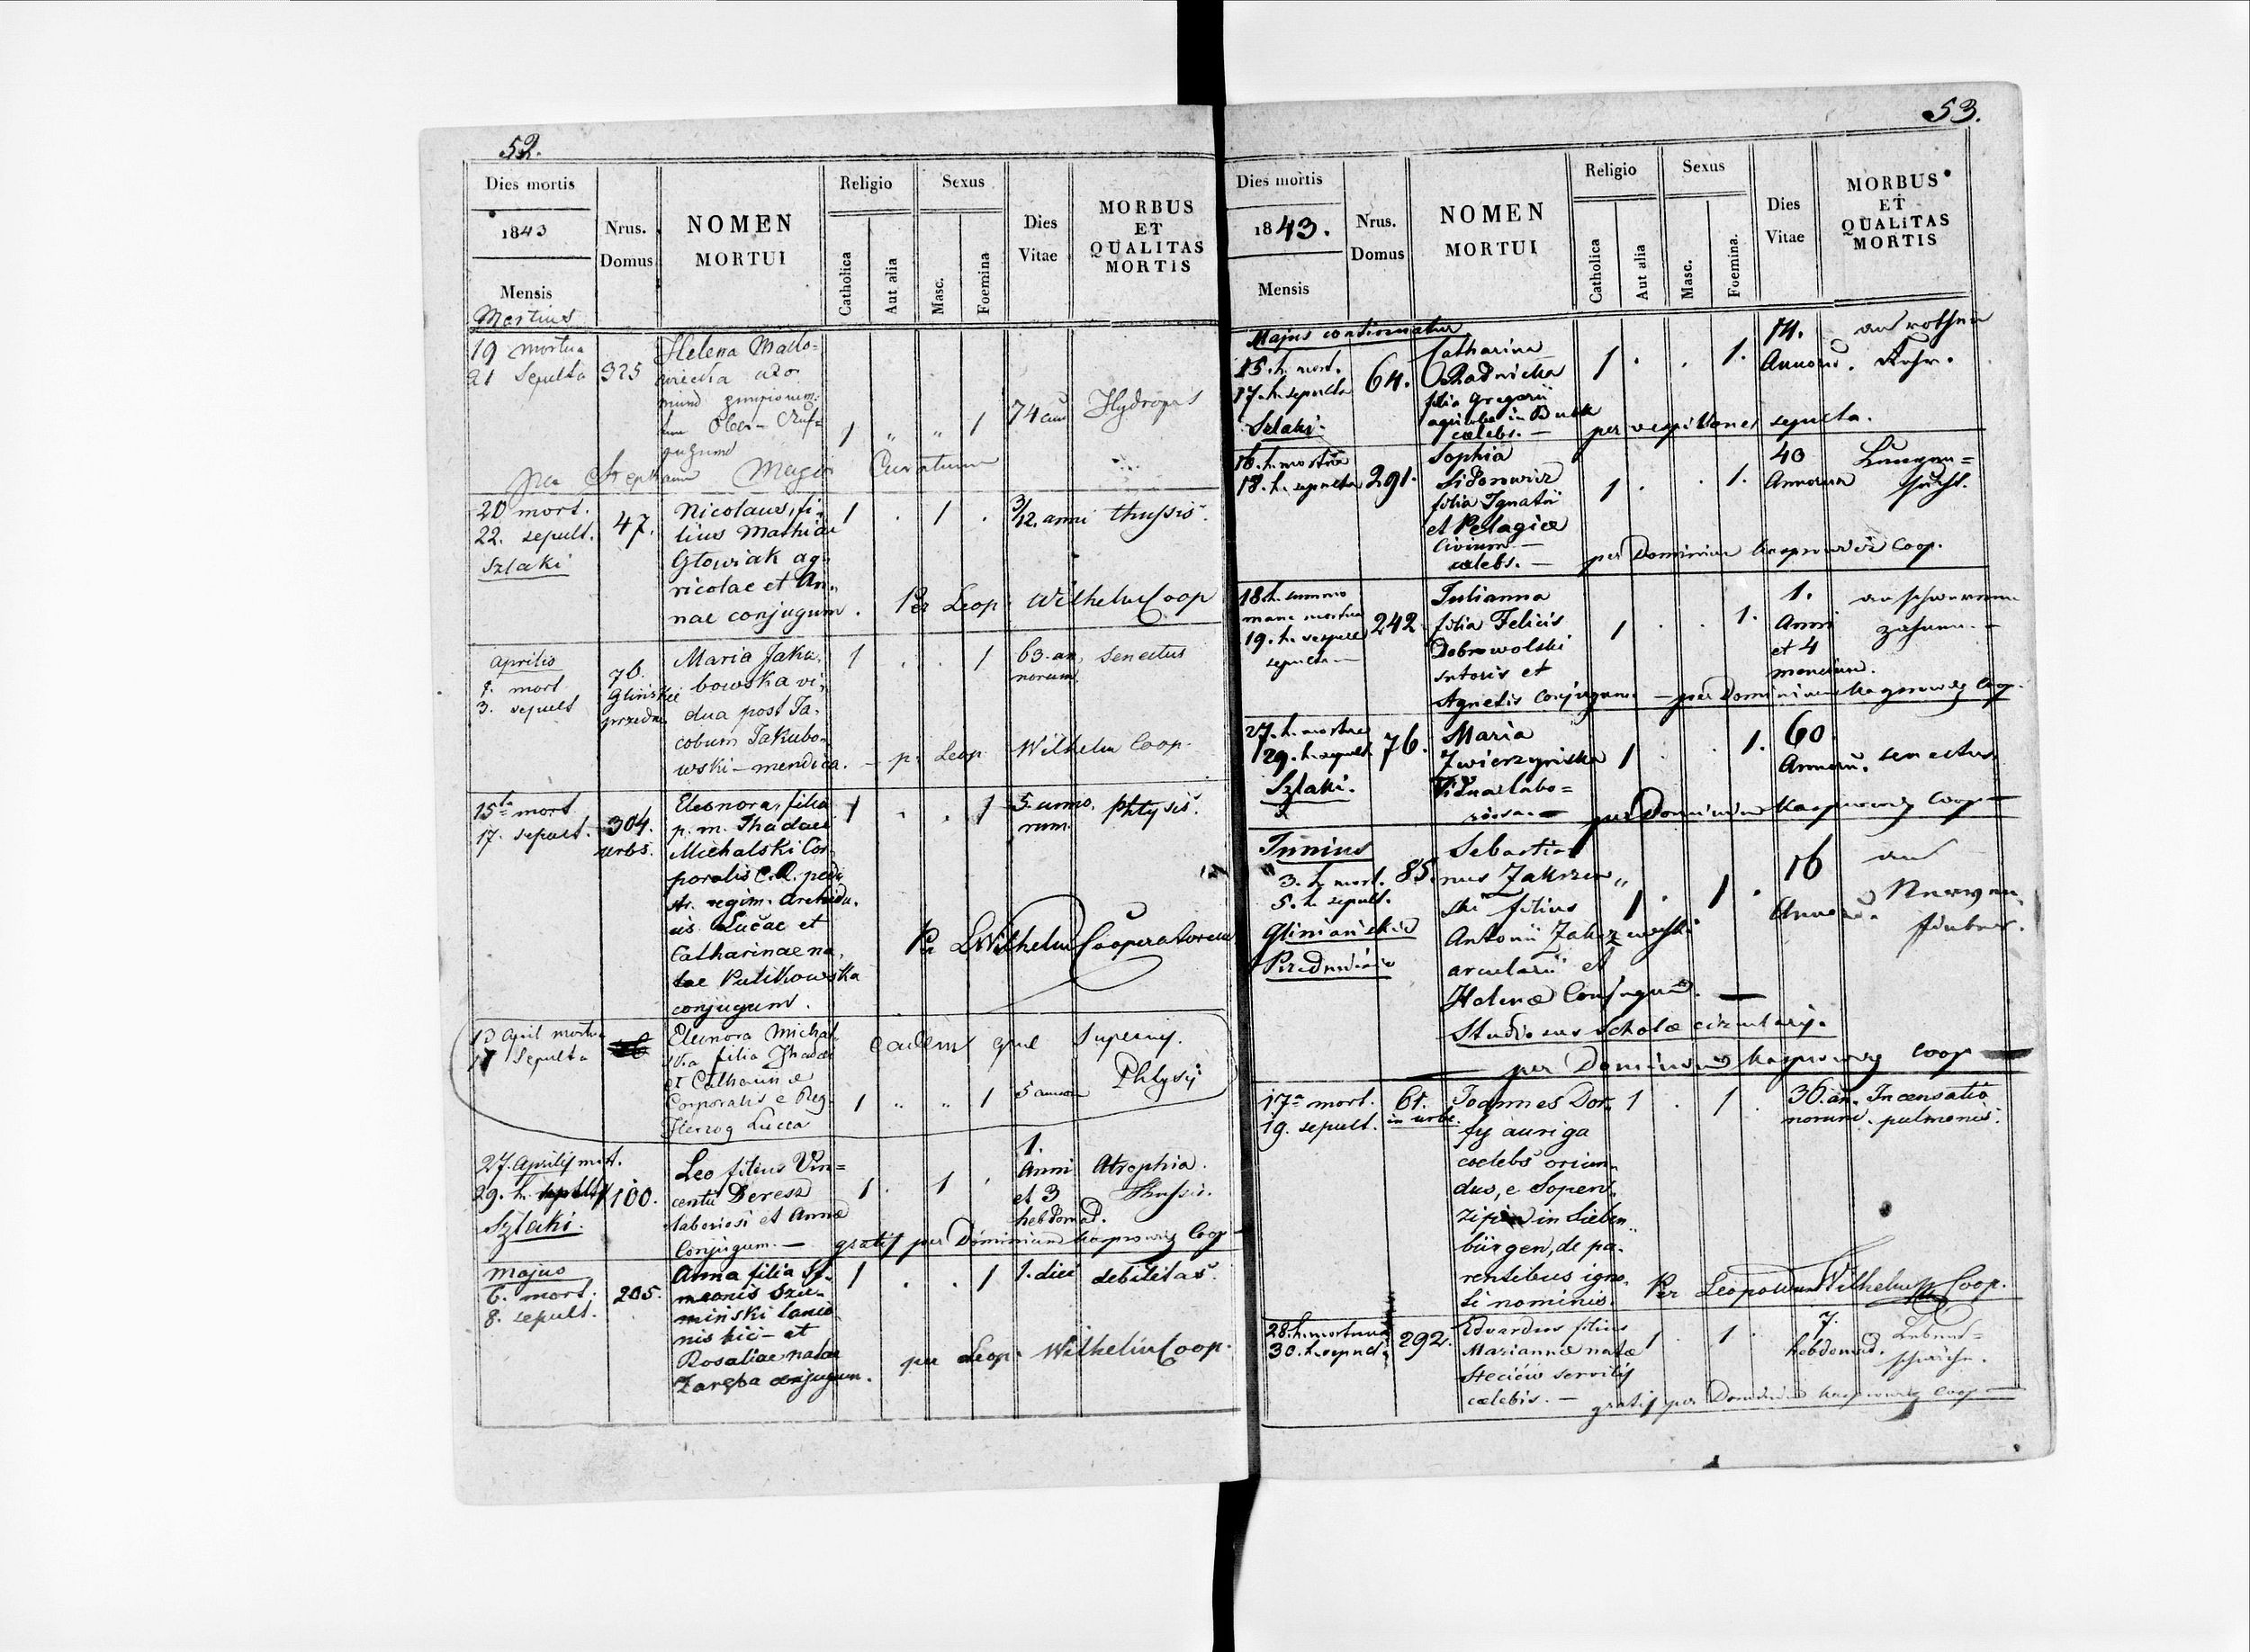 52.
Dies mortis
1843
Mensis
Martius
Nrus.
Domus
NOMEN
MORTUI
Religio
Catholica
Aut alia
Sexus
Masc.
Foemina
Dies
Vitae
MORBUS
ET
QUALITAS
MORTIS
19 mortua
21 Sepulta
325
Helena
74
Hydrops
1 " " 1
Curatum
20 mort.
22. sepult.
Szlaki
47.
Nicolaus, fi-
lius Mathiae
Głowiak ag-
ricolae et An-
nae conjugum.
1 . 1 .
3/12. anni
thussis.
Per Leop. Wilhelm Coop
Aprilis
1. mort
3. sepult
76.
Maria Jaku-
bowska vi-
dua post Ja-
cobum Jakubo-
wski - mendica.
1 . . 1
63. an-
norum.
senectus
p. Leop. Wilhelm Coop.
15ta mort
17. sepult.
304.
urbs.
Eleonora, filia
p. m. Thadaei
Michalski Cor-
poralis C. R. pedi-
str. regim. Archidu-
cis Lucae et
Catharinae na-
tae Putikowska
conjugum.
1 . . 1
5. anno-
rum.
phtysis.
Per L. Wilhelm Cooperatorem
13 April mortua
17 Sepulta
Eleonora Michal-
ska filia Thadei
et Catharinae
Corporalis e Reg.
Herzog Lucca
eadem que superius.
1 " " 1
5
Phtysis
27. Aprilis mort.
29. h. sepult
Szlaki.
100.
Leo filius Vin=
centii Deresz
laboriosi et Annae
Conjugum. —
1 . 1 .
1.
Anni
et 3
hebdomad.
Atrophia.
Thussis.
gratis per Dominicum Kasprowicz Coop
Majus
6. mort.
8. sepult.
205.
Anna filia Si-
meonis Szu-
minski lanio-
nis hic - et
Rosaliae natae
Zaręba conjugum.
1 . . 1
1. diei
debilitas.
per Leop. Wilhelm Coop.
53.
Dies mortis
1843.
Mensis
Nrus.
Domus
NOMEN
MORTUI
Religio
Catholica
Aut alia
Sexus
Masc.
Foemina.
Dies
Vitae
MORBUS
ET
QUALITAS
MORTIS
Majus continuatur
15. h. mort.
17. h. sepulta
Szlaki.
64.
Catharina
Radnicka
filia Gregorii
agricolae in Busk
caelebs. —
1 . . 1.
74.
Annorū.
an rother
Ruhr.
per vespillones sepulta.
16. h. mortua
18. h. sepulta
291.
Sophia
Sidorowicz
filia Ignatii
et Pelagiae
Civium —
caelebs. —
1 . . 1.
40
Annorum
Lungen=
sucht.
per Dominicum Kasprowicz Coop.
18. h. summo
mane mortua
19. h. vespere
sepulta —
242.
Julianna
filia Felicis
Dobrowolski
sutoris et
Agnetis Conjugum. — per Dominicum Kasprowicz Coop.
1 . . 1.
1.
Anni
et 4
mensium.
an schweren
zahnen. —
27. h. mortua
29. h. sepult.
Szlaki.
76.
Maria
Zwierzyńska
Vidua labo=
riosa. —
1 . . 1.
60
Annorū.
senectus.
per Dominicum Kasprowicz Coop —
Junius
3. h. mort.
5. h. sepult.
Glinianskie
Przedmieście
85.
Sebastia-
nus Zakrzew„
ski filius
Antonii Zakrzewski
arcularii et
Helenae Conjugum. —
Studiosus scholae circularis.
1 . 1 .
16
Annorū.
am
Nerven-
fieber.
per Dominicum Kasprowicz Coop
17a mort.
19. sepult.
61.
in urbe.
Joannes Dor-
fy auriga
caelebs oriun-
dus, e
in Sieben-
bürgen, de pa-
rentibus igno-
ti nominis.
1 . 1 .
36. an-
norum.
Incensatio
pulmonis.
Per Leopoldum Wilhelm Coop.
28. h. mortuus
30. h. sepult
292.
Edvardus filius
Mariannae natae
Steciów servilis
caelebis. —
1 . 1 .
7.
hebdomad.
Lebens=
schwäche.
gratis per Dominicum Kasprowicz Coop —